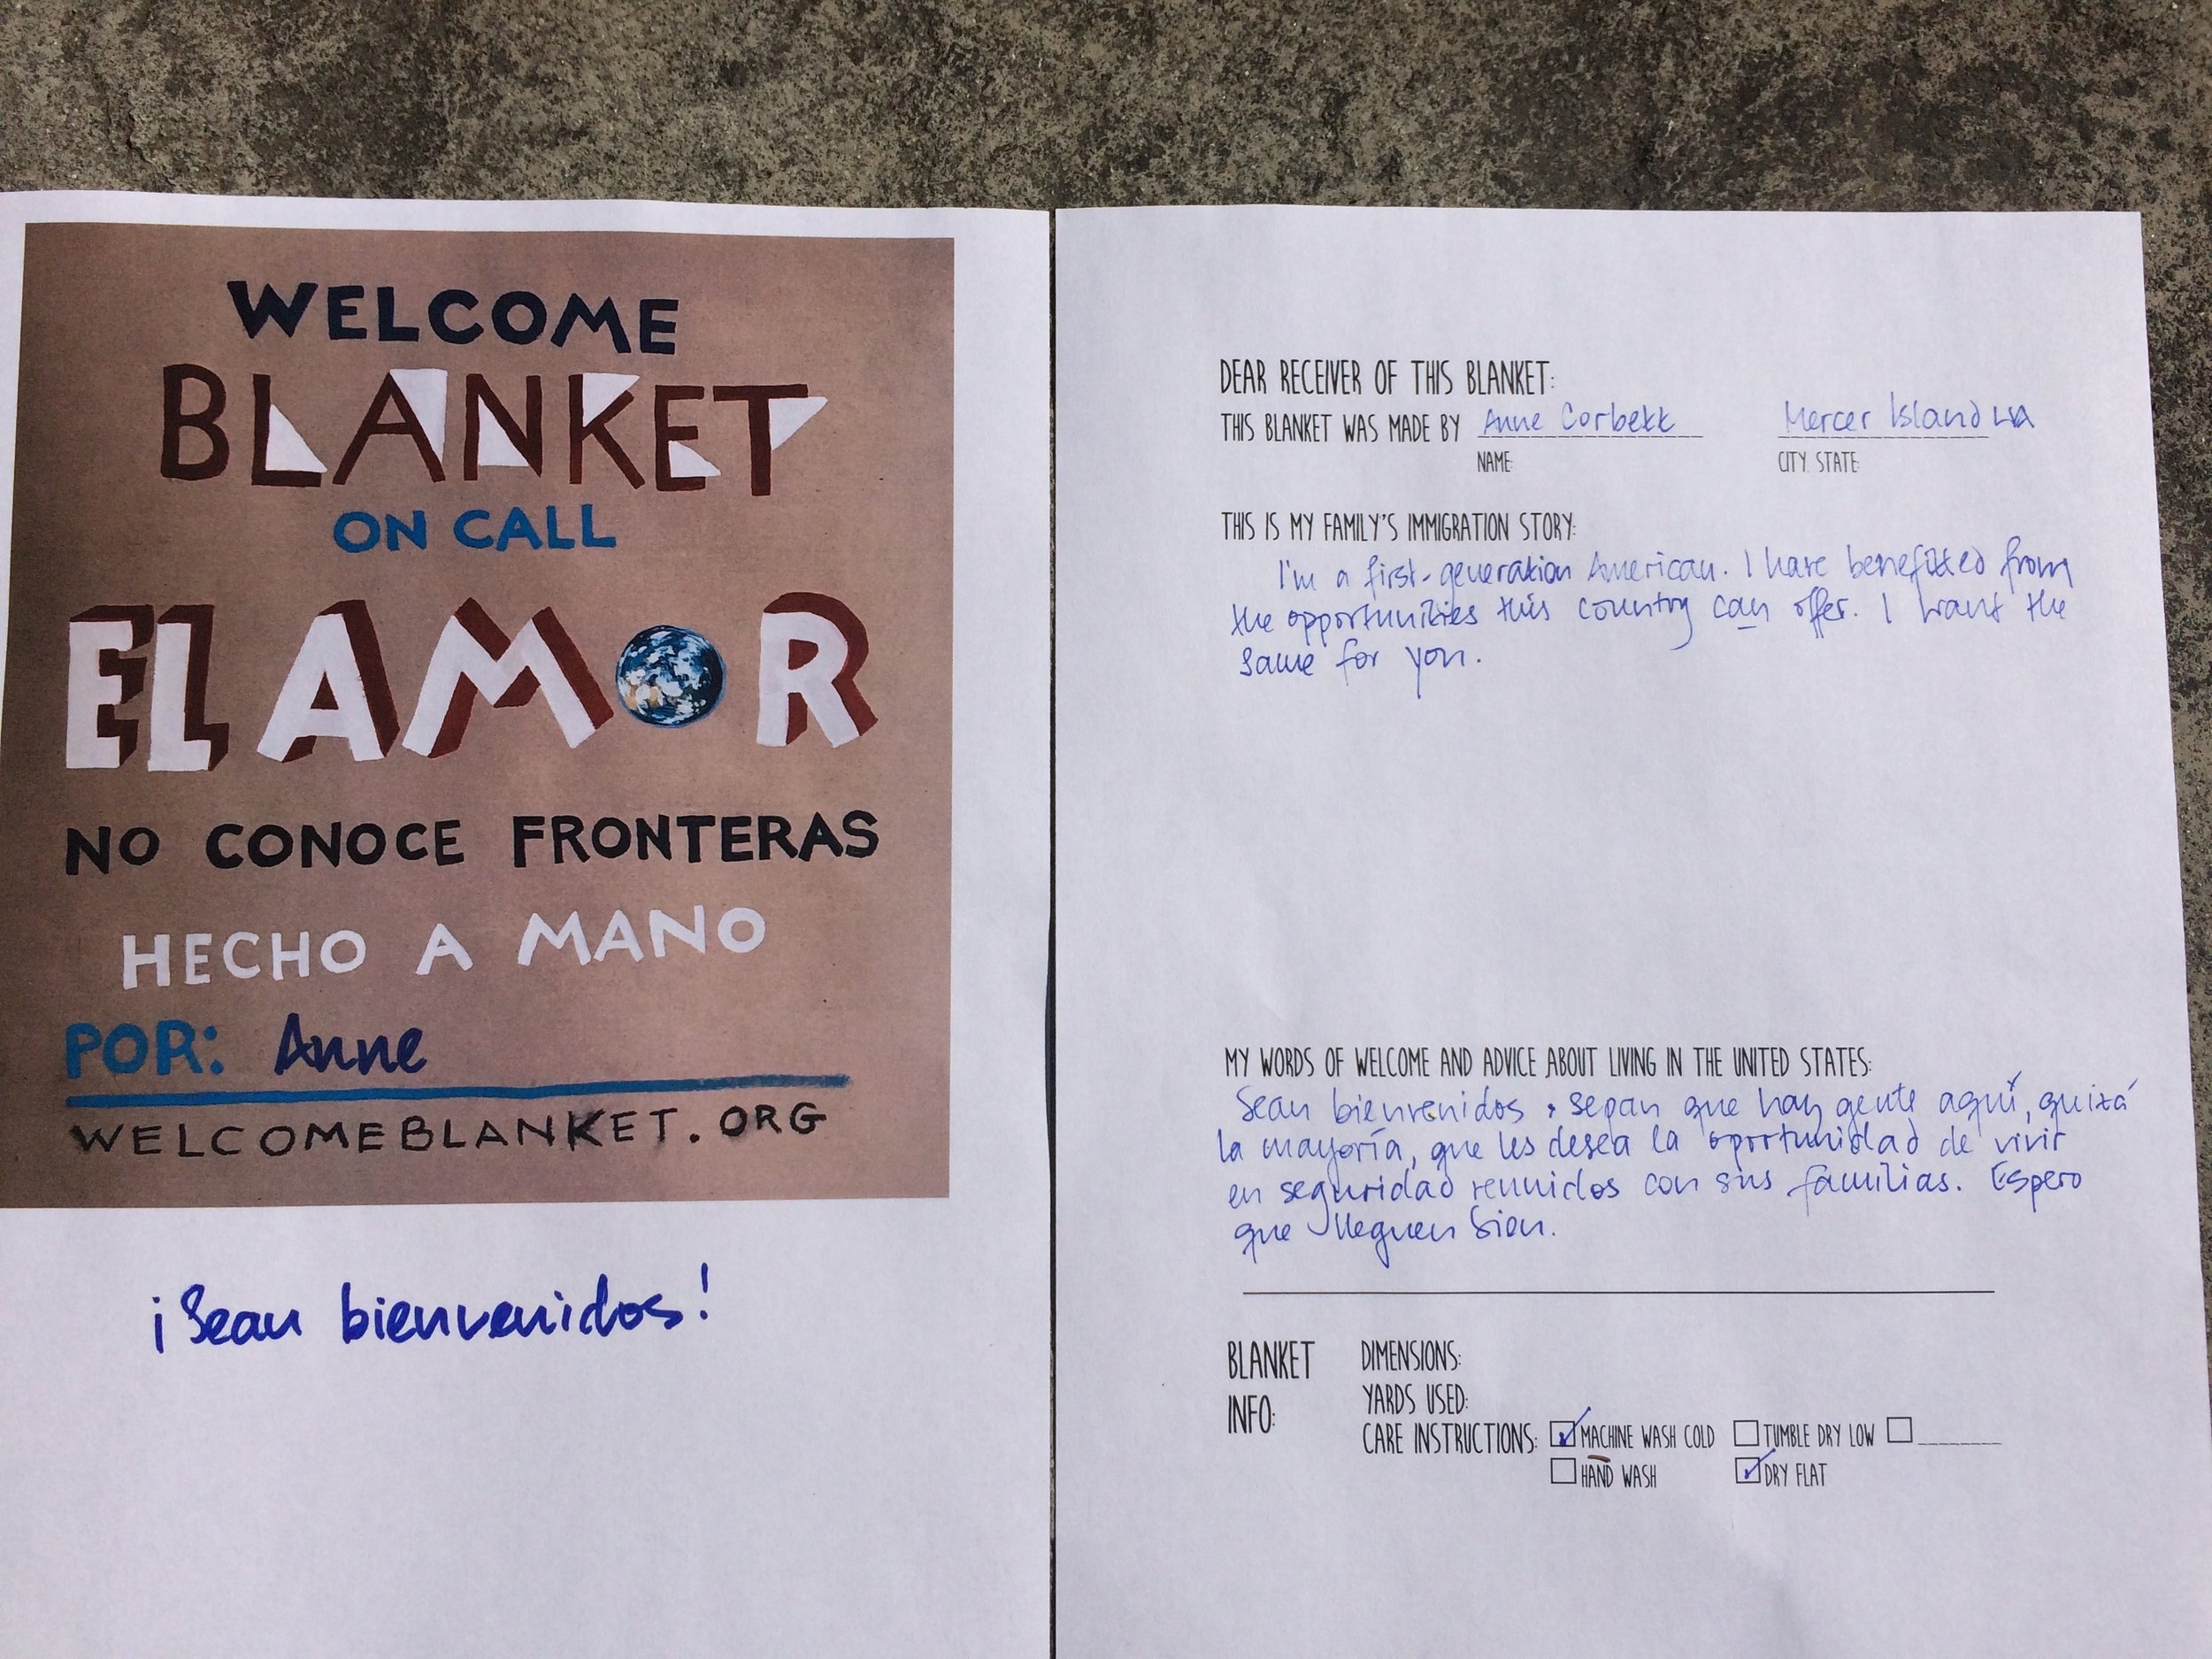 WELCOME
BLANKET
ON CALL
EL AMOR
NO CONOCE FRONTERAS
HECHO A MANO
POR: Anne
WELCOMEBLANKET.ORG
¡Sean bienvenidos!
DEAR RECEIVER OF THIS BLANKET:
THIS BLANKET WAS MADE BY Anne Corbett Mercer Island WA
NAME: CITY, STATE:
THIS IS MY FAMILY'S IMMIGRATION STORY:
I'm a first-generation American. I have benefitted from
the opportunities this country can offer. I want the
same for you.
MY WORDS OF WELCOME AND ADVICE ABOUT LIVING IN THE UNITED STATES:
Sean bienvenidos, sepan que hay gente aquí, quizá
la mayoría, que les desea la oportunidad de vivir
en seguridad reunidos con sus familias. Espero
que lleguen bien.
BLANKET
INFO:
DIMENSIONS:
YARDS USED:
CARE INSTRUCTIONS: MACHINE WASH COLD TUMBLE DRY LOW
HAND WASH DRY FLAT